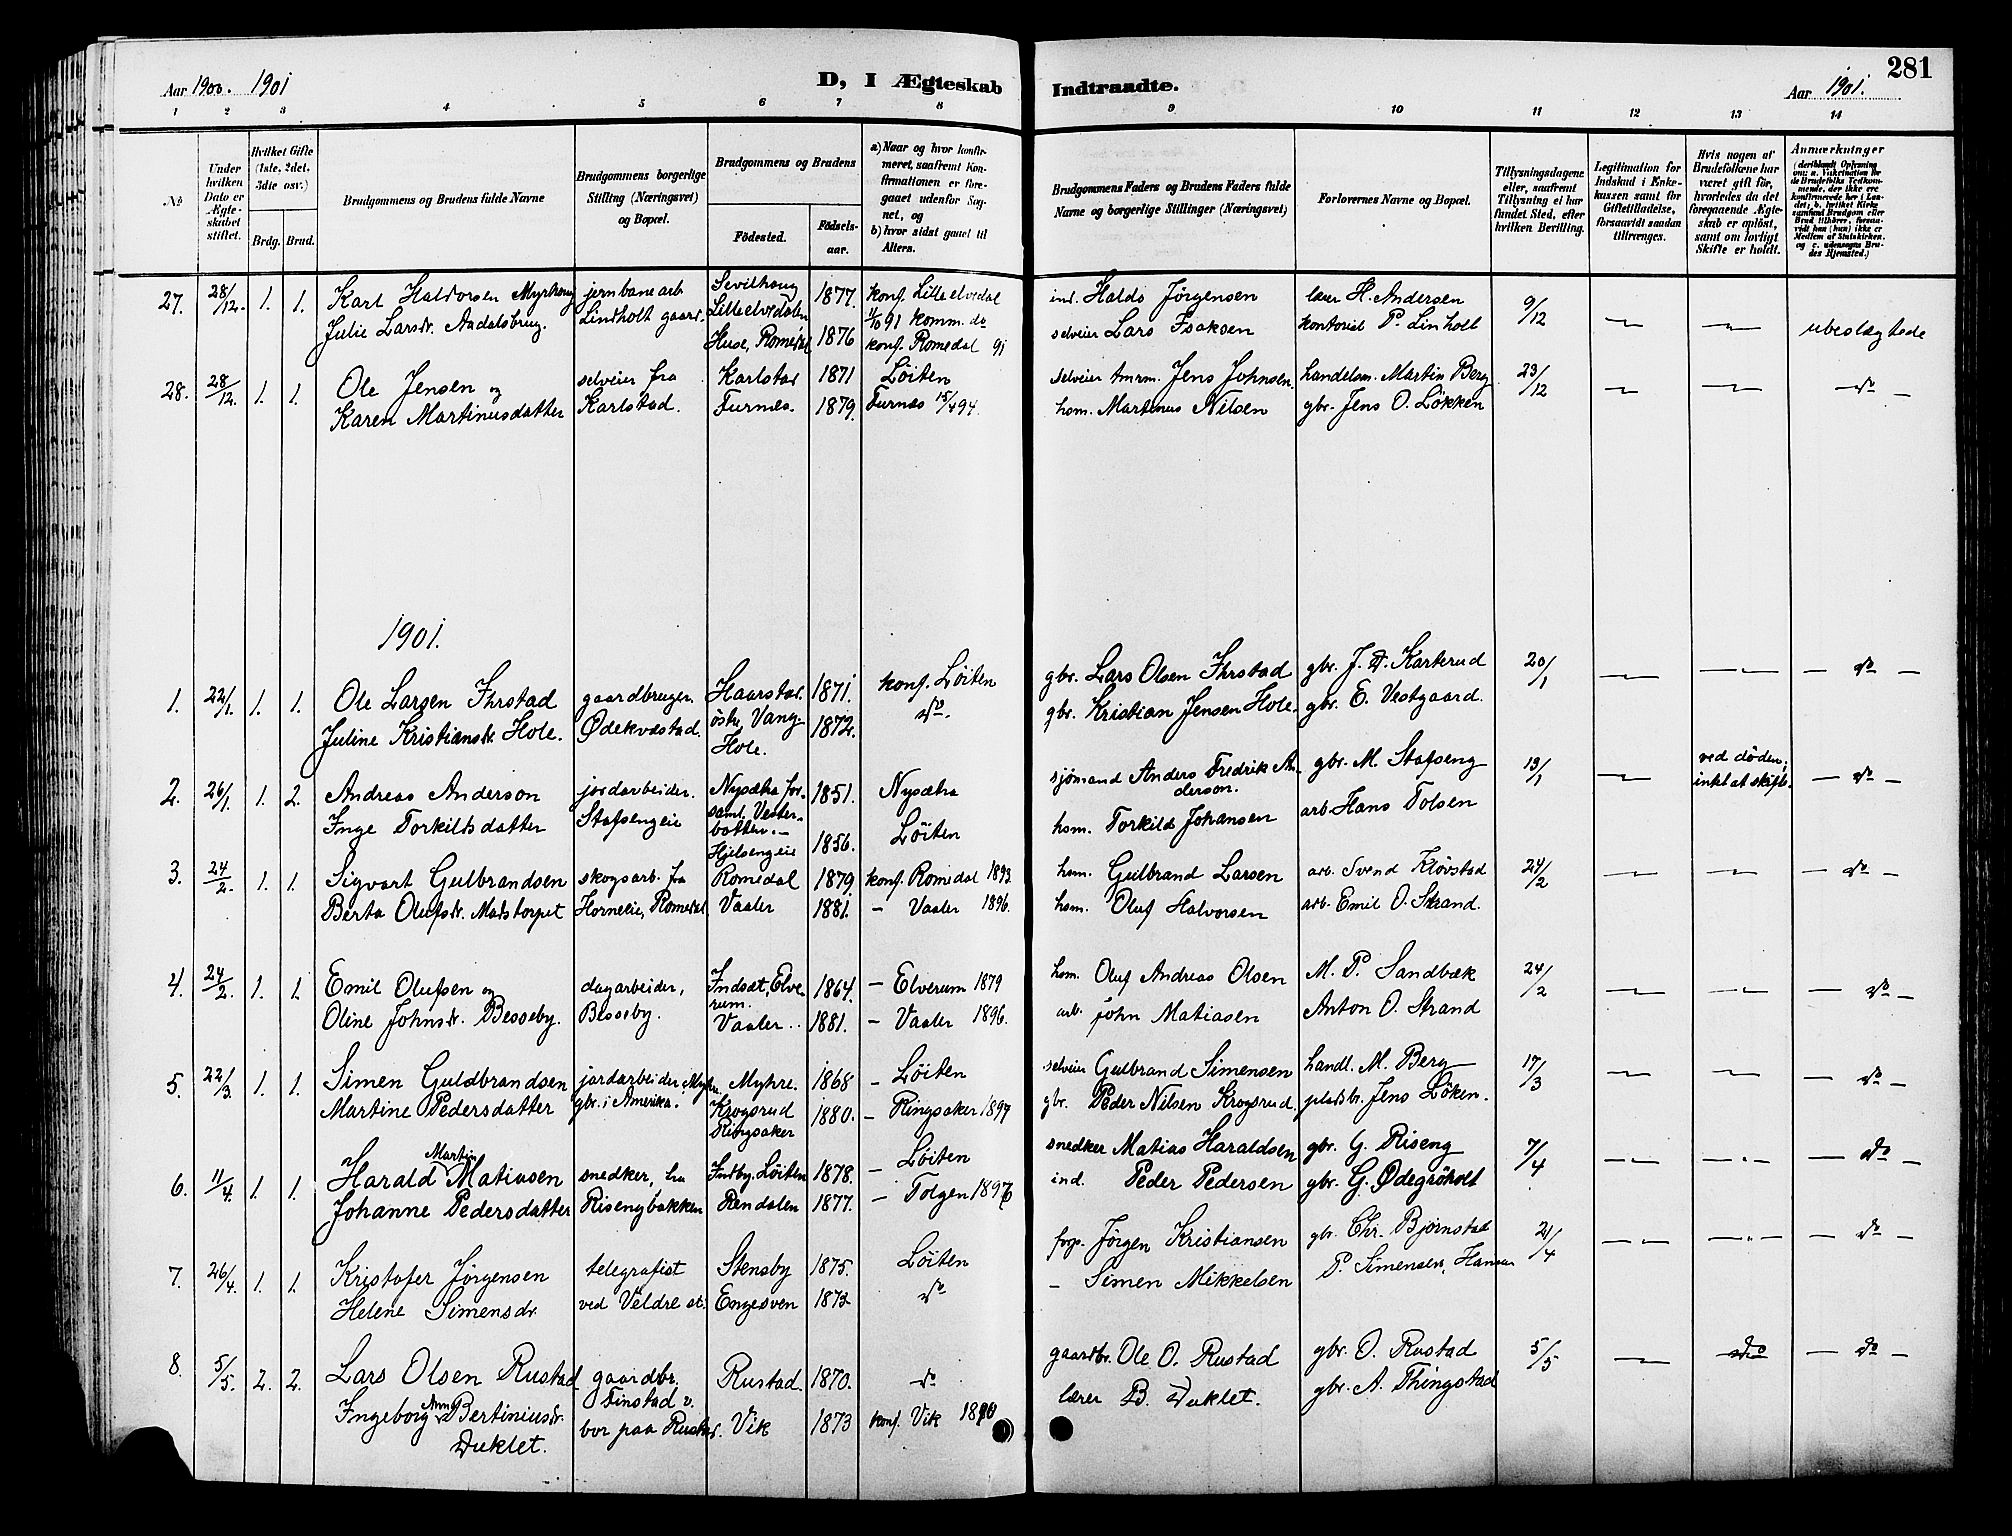 Aar 1900. 1901
D, I Ægteskab Indtraadte.
Aar 1901.
281
1 2 3 4 5 6 7 8 9 10 11 12 13 14
No
Under hvilken Dato er Ægteskabet stiftet.
Hvilket Gifte (1ste, 2det, 3die osv.)
Brdg. Brud.
Brudgommens og Brudens fulde Navne
Brudgommens borgerlige Stilling (Næringsvei) og Bopæl.
Brudgommens og Brudens
Födested.
Födsels-aar.
a) Naar og hvor konfirmeret, saafremt Konfirmationen er foregaaet udenfor Sognet, og
b) hvor sidst gaaet til Alters.
Brudgommens Faders og Brudens Faders fulde Navne og borgerlige Stillinger (Næringsvei)
Forlovernes Navne og Bopæl.
Tillysningsdagene eller, saafremt Tillysning ei har fundet Sted, efter hvilken Bevilling.
Legitimation for Indskud i Enkekassen samt for Giftetilladelse, forsaavidt saadan tiltrænges.
Hvis nogen af Brudefolkene har været gift för, hvorledes da det foregaaende Ægteskab er oplöst, samt om lovligt Skifte er holdt.
Anmærkninger
27. 28/12. 1. 1. Karl Haldorsen Myrhaug jernbanearb Sevilhaug 1877. konf. Lilleelvedal ind. Haldo Jørgensen lærer H. Andersen 9/12
Julie Larsdr. Aadalsbrug. Lindholt gaard. Lilleelvedalen 91 komm. do selveier Lars Isaksen kontorist P. Linholt ubeslægtede
Huse, Romedal 1876 konf. Romedal 91
28. 28/12. 1. 1. Ole Jensen og selveier fra Karlstad 1871 Löiten selveier tmrm. Jens Johnsen. handelsm. Martin Berg 23/12 do
Karen Martinusdatter Karlstad. Furnes. 1879. Furnæs 15/4 94. hsm. Martinus Nilsen gbr. Jens O. Løkken
1901.
1. 22/1. 1. 1. Ole Larsen Ihrstad gaardbruger Haarstad. 1871. konf. Löiten gbr. Lars Olsen Ihrstad gbr. J. A. Karterud 20/1 do
Juline Kristiansdr. Hole. Ødekvæstad. östre Vang 1872. do. gbr. Kristian Jensen Hole. gbr. E. Vestgaard.
Hole.
2. 26/1. 1. 2. Andreas Anderson jordarbeider. Nysætra for- 1851. Nysætra sjömand Anders Fredrik An- gbr. M. Stafseng 13/1 ved döden; do
Inge Torkildsdatter Stafsengeie saml. Vester- derson. intet at skifte.
botten. 1856. Löiten hsm. Torkild Johansen arb. Hans Tolsen
Hjelsengeie
3. 24/2. 1. 1. Sigvart Gulbrandsen skogsarb. fra Romedal 1879. konf. Romedal 1893 hsm. Gulbrand Larsen arb. Svend Kløvstad 24/2 do
Berta Olufsdr. Madstorpet Horneeie, Romedal Vaaler 1881. - Vaaler 1896. hsm. Oluf Halvorsen arb. Emil O. Strand.
4. 24/2. 1. 1. Emil Olufsen og dagarbeider, Indsæt, Elve- 1864. - Elverum 1879 hsm. Oluf Andreas Olsen M. P. Sandbæk 24/2 do
rum.
Oline Johnsdr. Besseby. Besseby. Vaaler.. 1881. - Vaaler 1896. arb. John Matiasen Anton O. Strand
5. 22/3. 1. 1. Simen Guldbrandsen jordarbeider, Myhre. Myhre. 1868 - Löiten selveier Gulbrand Simensen handl. M. Berg 17/3 do
Martine Pedersdatter gbr. i Amerika. Krogsrud 1880. - Ringsaker 1897 gbr. Peder Nilsen Krogsrud. pladsbr. Jens Löken.
Ringsaker
6. 11/4. 1. 1. Harald Martin Matiasen snedker, fra Indby, Löiten 1878. - Löiten snedker Matias Haraldsen gbr. G. Riseng 7/4 do
Johanne Pedersdatter Risengbakken Rendalen 1877. - Tolgen 1897 ind. Peder Pedersen gbr. G. Ødegröholt
7. 26/4. 1. 1. Kristofer Jørgensen telegrafist Stensby 1875. Löiten forp. Jørgen Kristiansen gbr. Chr. Bjørnstad 21/4 do
Helene Simensdr. ved Veldre st. Engesven 1873 do - Simen Mikkelsen P. Simensen, Hamar
8. 5/5. 2. 2. Lars Olsen Rustad gaardbr. Rustad. 1870. do gaardbr. Ole O. Rustad gbr. O. Rustad 5/5 do do
Ingeborg Anna Bertiniusdr. Finstad v. Vik 1873 konf. Vik lærer B. Duklet. gbr. A. Thingstad
Duklet. bor paa Rustad.